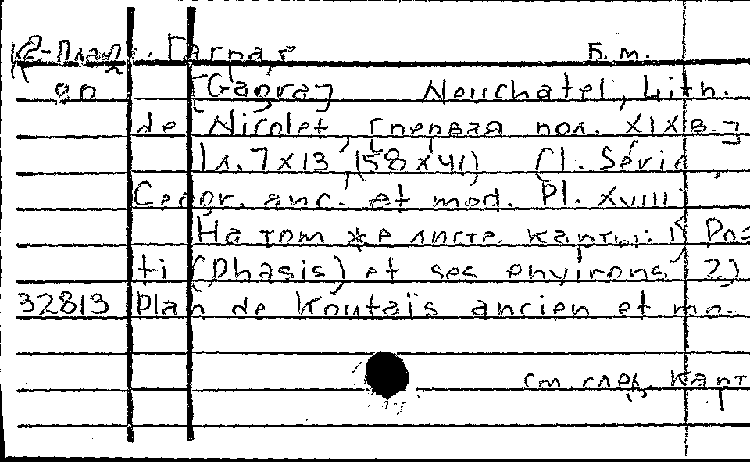 К2-План. Гагра, Б.м.
90 [Gagra] Neuchatel, Lith.
de Nicolet, [первая пол. XIXв.]
1 л. 7x13 (58x41) (1. Série,
Geogr. anc. et mod. Pl. XVIII)
На том же листе карты: 1)
ti (Phasis) et ses environs 2)
32813 Plan de Koutaïs ancien et mo.
см. след. карт